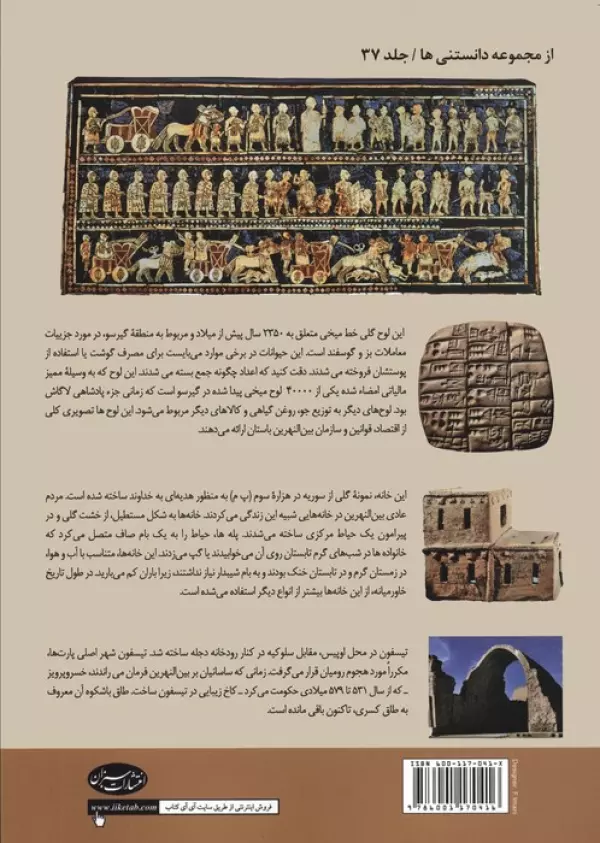 از مجموعه دانستنی ها / جلد ۳۷
این لوح گلی خط میخی متعلق به ۲۳۵۰ سال پیش از میلاد و مربوط به منطقهٔ گیرسو، در مورد جزییات
معاملات بز و گوسفند است. این حیوانات در برخی موارد می‌بایست برای مصرف گوشت یا استفاده از
پوستشان فروخته می شدند. دقت کنید که اعداد چگونه جمع بسته می شدند. این لوح که به وسیلهٔ ممیز
مالیاتی امضاء شده یکی از ۴۰۰۰۰ لوح میخی پیدا شده در گیرسو است که زمانی جزء پادشاهی لاگاش
بود. لوح‌های دیگر به توزیع جو، روغن گیاهی و کالاهای دیگر مربوط می‌شود. این لوح ها تصویری کلی
از اقتصاد، قوانین و سازمان بین‌النهرین باستان ارائه می‌دهند.
این خانه، نمونهٔ گلی از سوریه در هزارهٔ سوم (پ م) به منظور هدیه‌ای به خداوند ساخته شده است. مردم
عادی بین‌النهرین در خانه‌هایی شبیه این زندگی می‌کردند. خانه‌ها به شکل مستطیل، از خشت گلی و در
پیرامون یک حیاط مرکزی ساخته می‌شدند. پله ها، حیاط را به یک بام صاف متصل می‌کرد که
خانواده ها در شب‌های گرم تابستان روی آن می‌خوابیدند یا گپ می‌زدند. این خانه‌ها، متناسب با آب و هوا،
در زمستان گرم و در تابستان خنک بودند و به بام شیبدار نیاز نداشتند، زیرا باران کم می‌بارید. در طول تاریخ
خاورمیانه، از این خانه‌ها بیشتر از انواع دیگر استفاده می‌شده است.
تیسفون در محل اوپیس، مقابل سلوکیه در کنار رودخانه دجله ساخته شد. تیسفون شهر اصلی پارت‌ها،
مکرراً مورد هجوم رومیان قرار می‌گرفت. زمانی که ساسانیان بر بین‌النهرین فرمان می راندند، خسروپرویز
ـ که از سال ۵۳۱ تا ۵۷۹ میلادی حکومت می‌کرد ـ کاخ زیبایی در تیسفون ساخت. طاق باشکوه آن معروف
به طاق کسری، تاکنون باقی مانده است.
انتشارات سبزان
www.iiketab.com
فروش اینترنتی از طریق سایت آی آی کتاب
ISBN 600-117-041-X
9 786001 170416